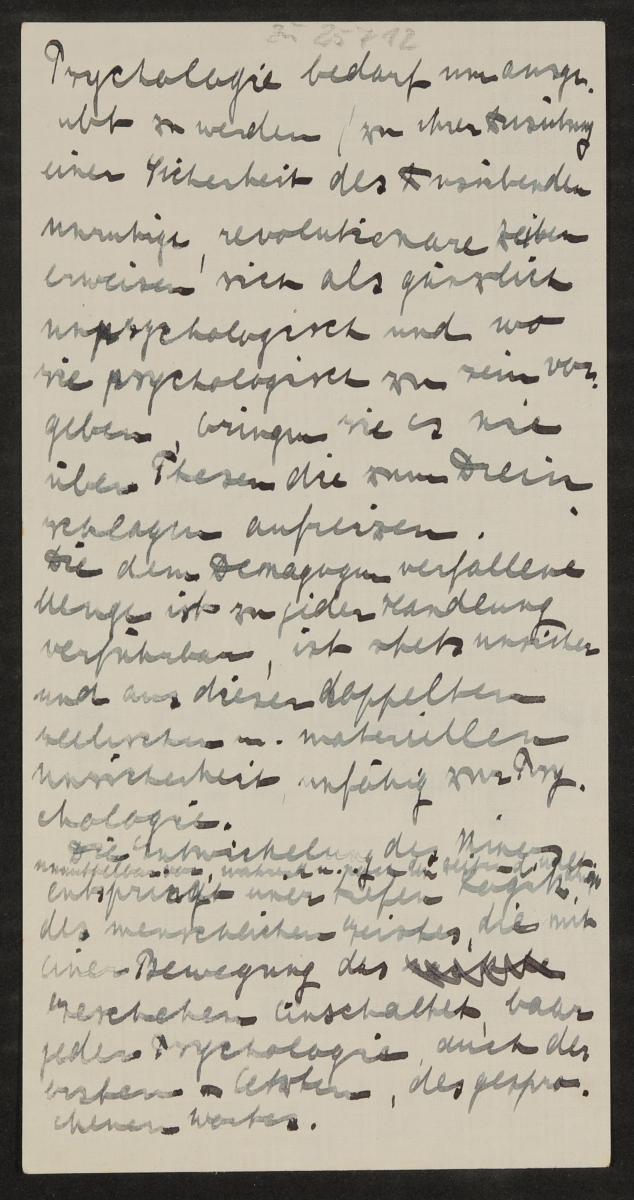 25712
Psychologie bedarf um ausge-
übt zu werden / zu ihrer Ausübung
einer Sicherheit des Ausübenden
unruhige, revolutionäre Zeiten
erweisen sich als gänzlich
unpsychologisch und wo
sie psychologisch zu sein vor-
geben, bringen sie es nie
über Thesen die zum Drein
schlagen aufreizen.
Die dem Demagogen verfallene
Menge ist zu jeder Handlung
verführbar, ist stets unsicher
und aus dieser doppelten
seelischen u. materiellen
Unsicherheit unfähig zur Psy-
chologie.
Die Entwickelung des Kinos
unmittelbar vor, während u. nach
entspringt einer tiefen Logik
des menschlichen Geistes, die mit
einer Bewegung das
Geschehen einschaltet, baar
jeder Psychologie, auch der
ersten u letzten, des gespro-
chenen Wortes.